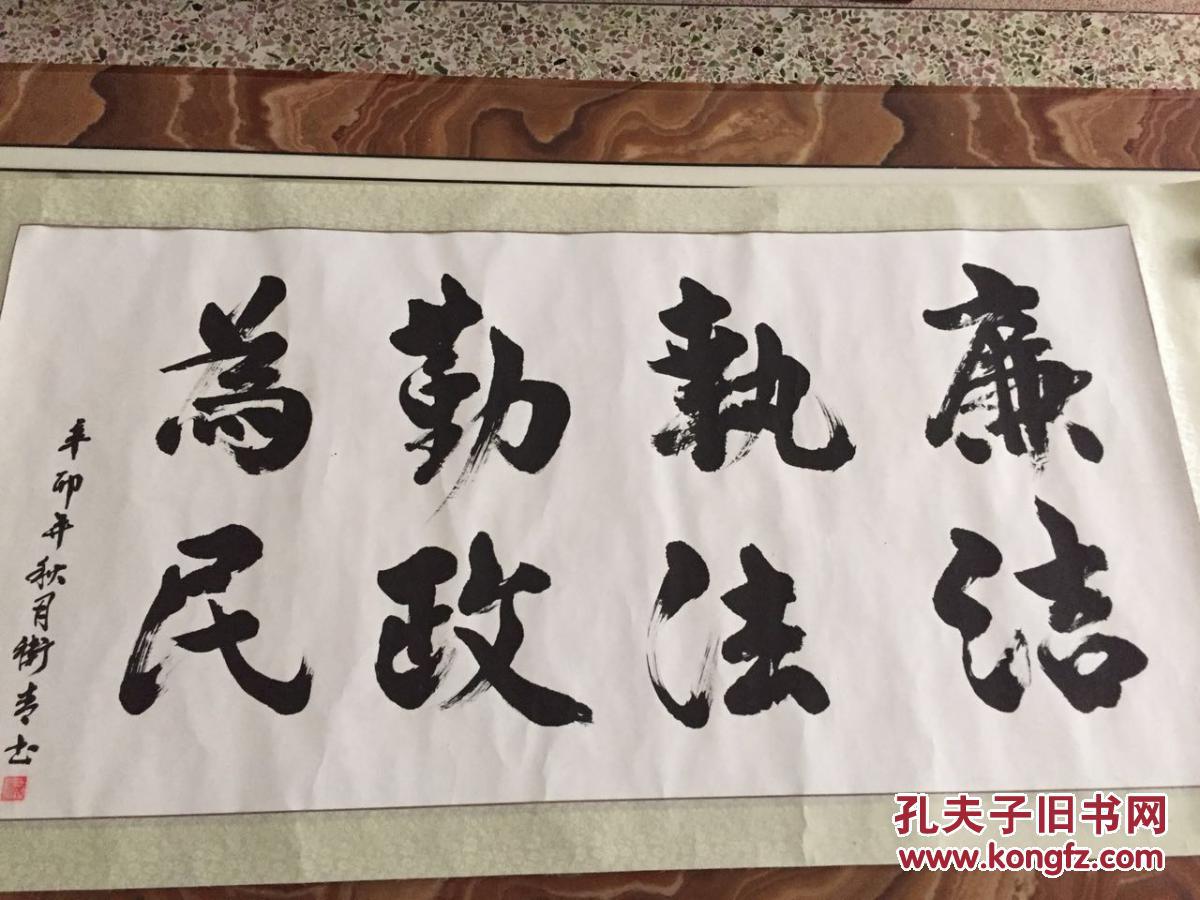 廉洁
執法
勤政
為民
辛卯年秋月衛青书
孔夫子旧书网
www.kongfz.com